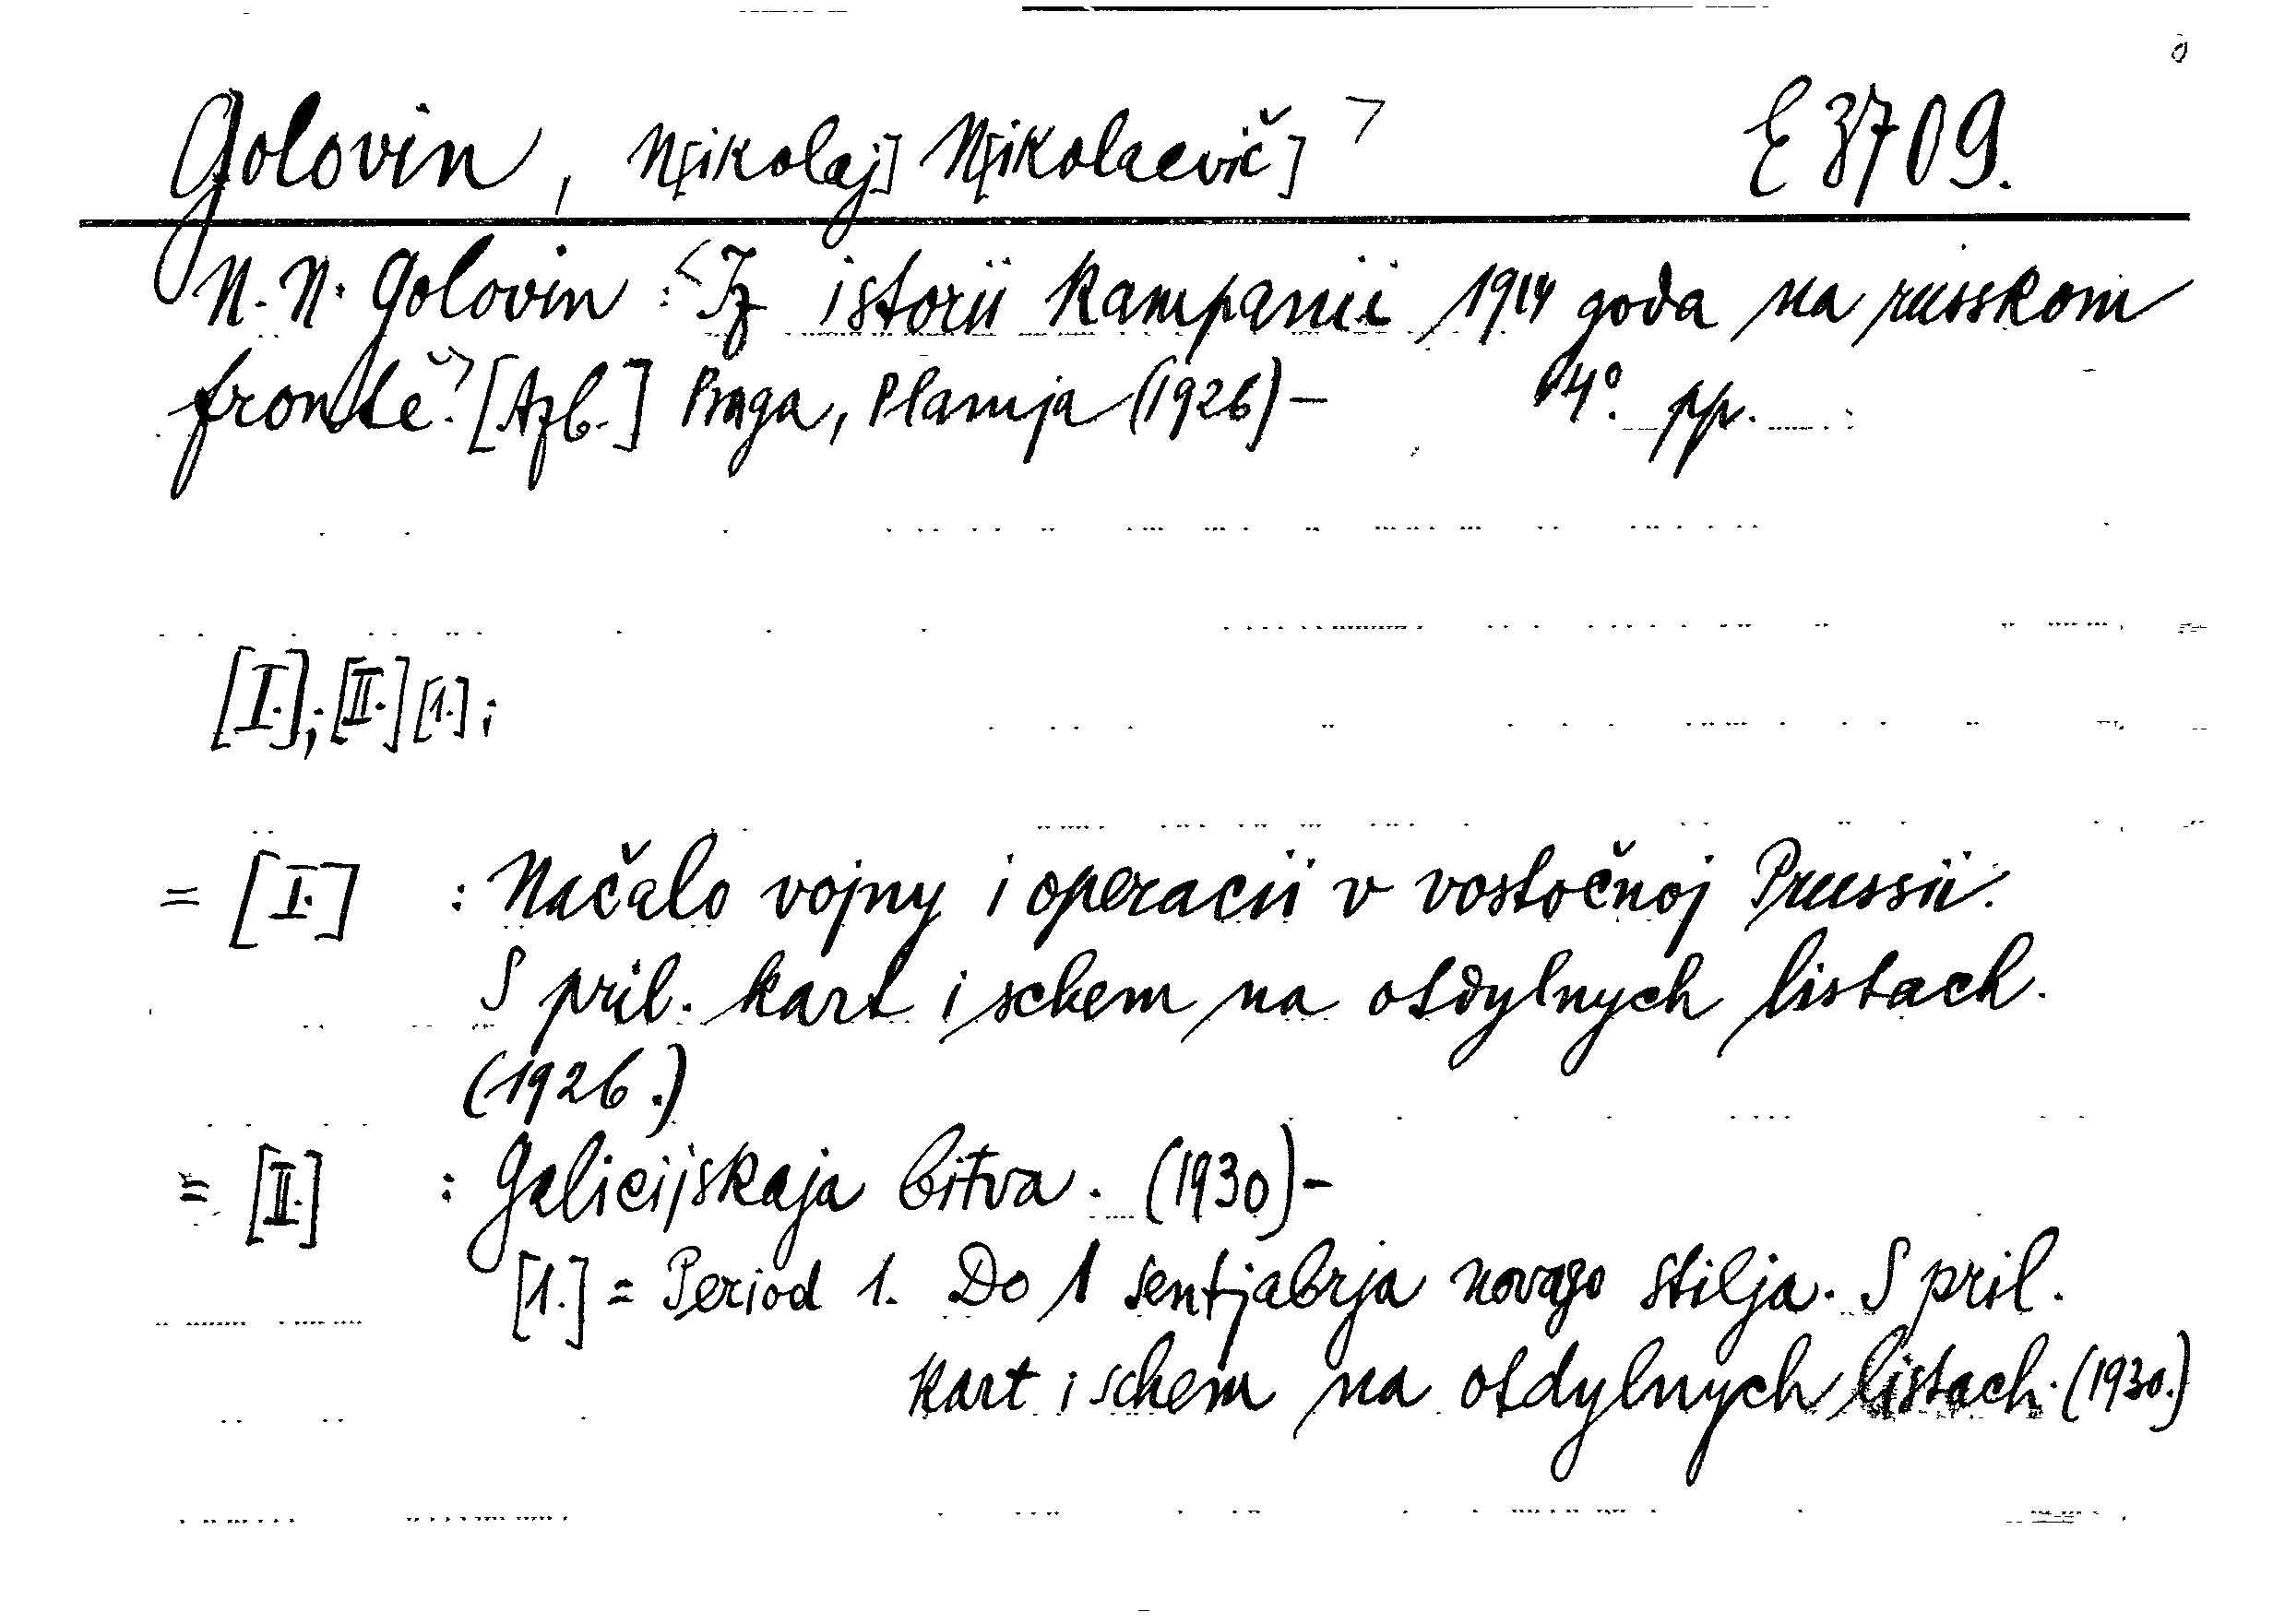 Golovin, N[ikolaj] N[ikolaevič] > E 3709.
N. N. Golovin: <Iz istorii kampanii 1914 goda na russkom
frontě.> [Azb.] Praga, Plamja (1926)- 4°. pp.
[I.]; [II.] [1.];
= [I.] : Načalo vojny i operacii v vostočnoj Prussii.
S pril. kart i schem na otdylnych listach.
(1926.)
= [II.] : Galicijskaja bitva. (1930)-
[1.] = Period 1. Do 1 sentjabrja novago stilja. S pril.
kart i schem na otdylnych listach. (1930.)